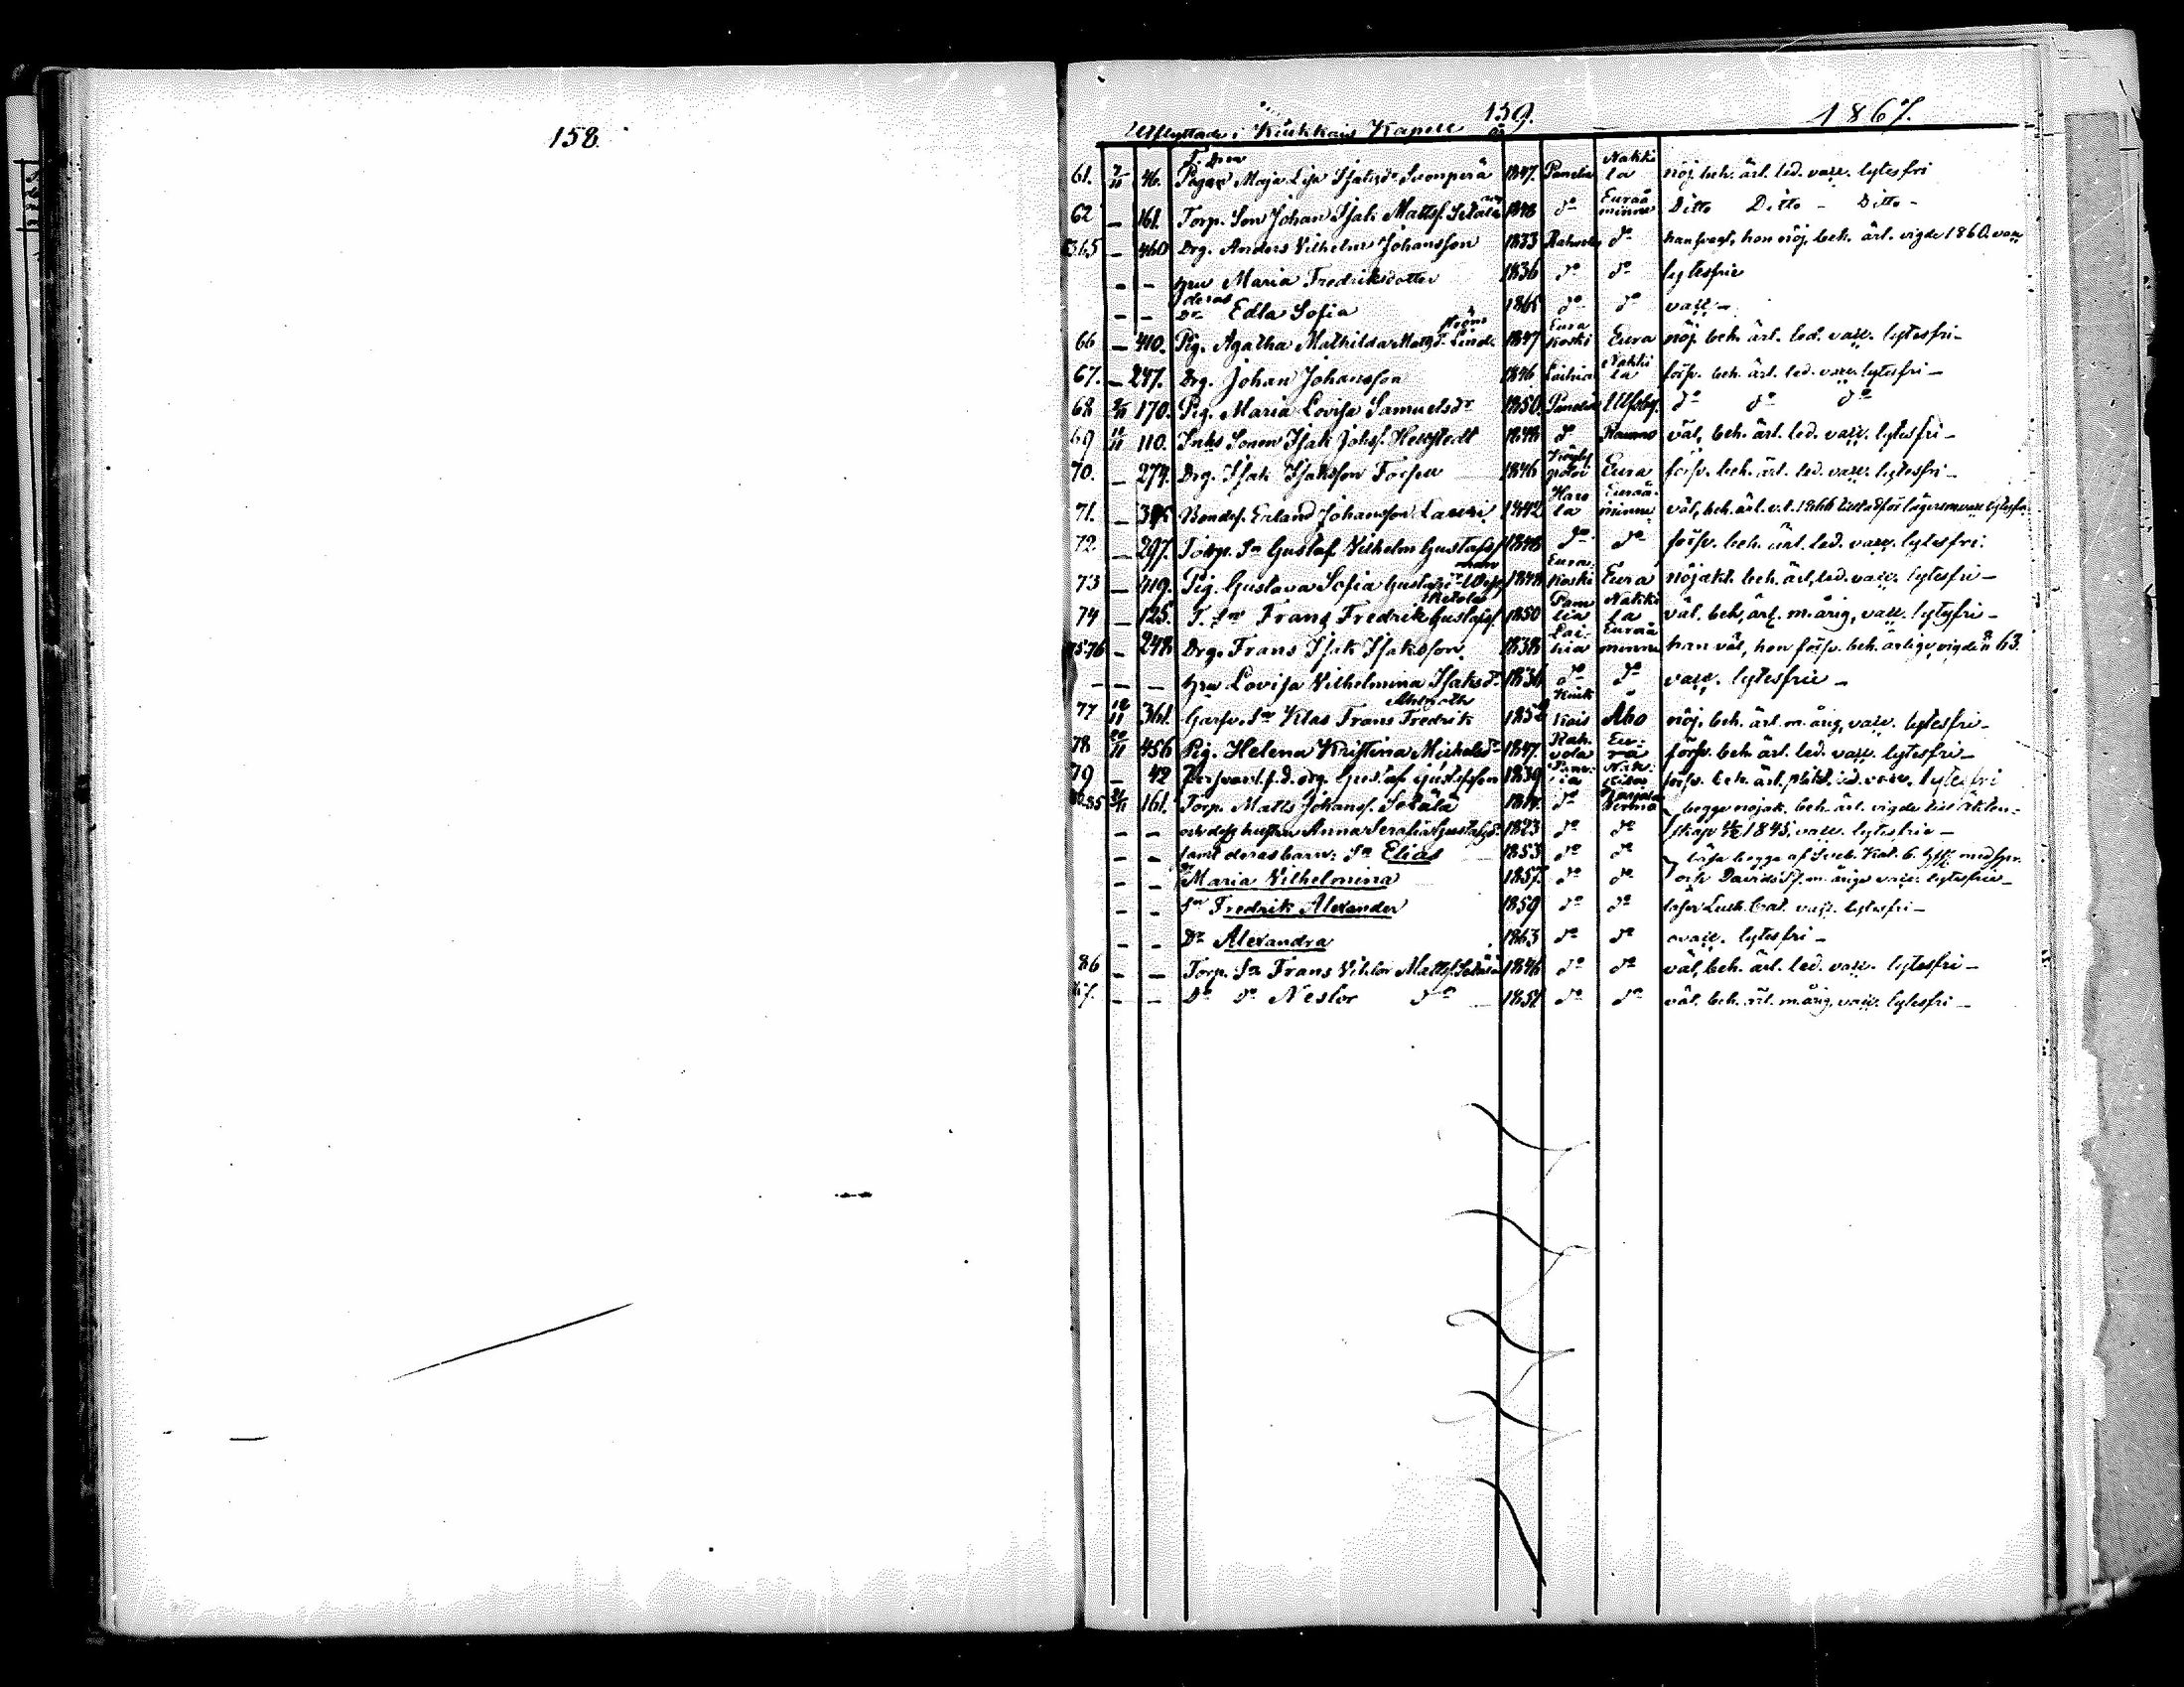 158.
159.
1867.
Utflyttade i Kiukkais Kapell
61. 7/11 46. T. Dren Pigan Maja Lisa Isaksdr 1847. Panelia Nakkila nöj. beh. ärl. led. vacc. lytesfri
62 — 161. Torp. Son Johan Isak Mattss. Setälä 1848 do Euraåminne Ditto Ditto — Ditto —
63.65 — 460 Drg. Anders Vilhelm Johansson 1833 do han svag, hon nöj. beh. ärl. vigde 1860. vacc
— — Hru Maria Fredriksdotter 1836 do do lytesfrie
— — deras Dr Edla Sofia do do vacc —
66 — 410. Pig. Agatha Mathilda Mattsdr Lindström 1847 Eura Koski Eura nöj. beh. ärl. led. vacc. lytesfri —
67. — 247. Drg. Johan Johansson 1846 Laihia Nakkila försv. beh. ärl. led. vacc. lytesfri —
68 170. Pig. Maria Lovisa Samuelsdr 1850. Panelia Ulfsby. do do do
69 110. Inhs Sonen Isak Johss. 1848 do Raumo väl, beh. ärl. led. vacc. lytesfri —
70. — 274. Drg. Isak Isaksson Torpu 1846 Eura försv. beh. ärl. led. vacc. lytesfri —
71. — Bondes. Erland Johansson Lauri 1842 Harola Euraåminne väl, beh. ärl. 1866 vacc lytesfri
72. — 297. Torp. Sn Gustaf Vilhelm Gustafss 1848 do do försv. beh. ärl. led. vacc. lytesfri.
73 — 419. Pig. Gustava Sofia Gustafsdr 1848 Eura Koski Eura nöjakt. beh. ärl, led. vacc. lytesfri —
74 — 125. T. Sn Frans Fredrik Gustafss. Ketola 1850 Panelia Nakkila väl. beh, ärl. m.årig, vacc. lytesfri —
75.76 — 248 Drg. Frans Isak Isaksson. 1838 Laihia Euraåminne han väl, hon försv. beh. ärlige, vigde 63.
— — — Hru Lovisa Vilhelmina Isaksdr 1836 do do vacc. lytesfrie —
77 361. Garfv. Sn Klas Frans Fredrik Ahlroth Kiukkais Åbo nöj. beh. ärl. m.årig, vacc. lytesfri —
78 20/11 456 Pig. Helena Kristina Michelsdr 1847. Rahvola Eura försv. beh. ärl. led. vacc. lytesfri —
79 — 42 f.d. drg. Gustaf Gustafsson 1839 Panelia försv. beh. ärl. led. vacc. lytesfri
80.85 161. Torp. Matts Johanss. Setälä do begge nöjak. beh. ärl. vigde till äkten-
— — och dess hustru Anna Serafia Gustafsdr 1823 do do skap 1845, vacc. lytesfrie —
— — samt deras barn: Sn Elias 1853 do do läsa begge af Luth. Kat.
— — Dr Maria Vilhelmina 1857. do do och Davids Ps. m.årige vacc. lytesfrie —
— — Sn Fredrik Alexander 1859 do do läser Luth. Cat. vacc. lytesfri —
— — Dr Alexandra 1863 do do ovacc. lytesfri —
86 — — Torp. Sn Frans Viktor Mattss. Setälä 1846 do do väl, beh. ärl. led. vacc. lytesfri —
87. — — Do do Nestor do — 1851 do do väl. beh. ärl. m.årig, vacc. lytesfri —